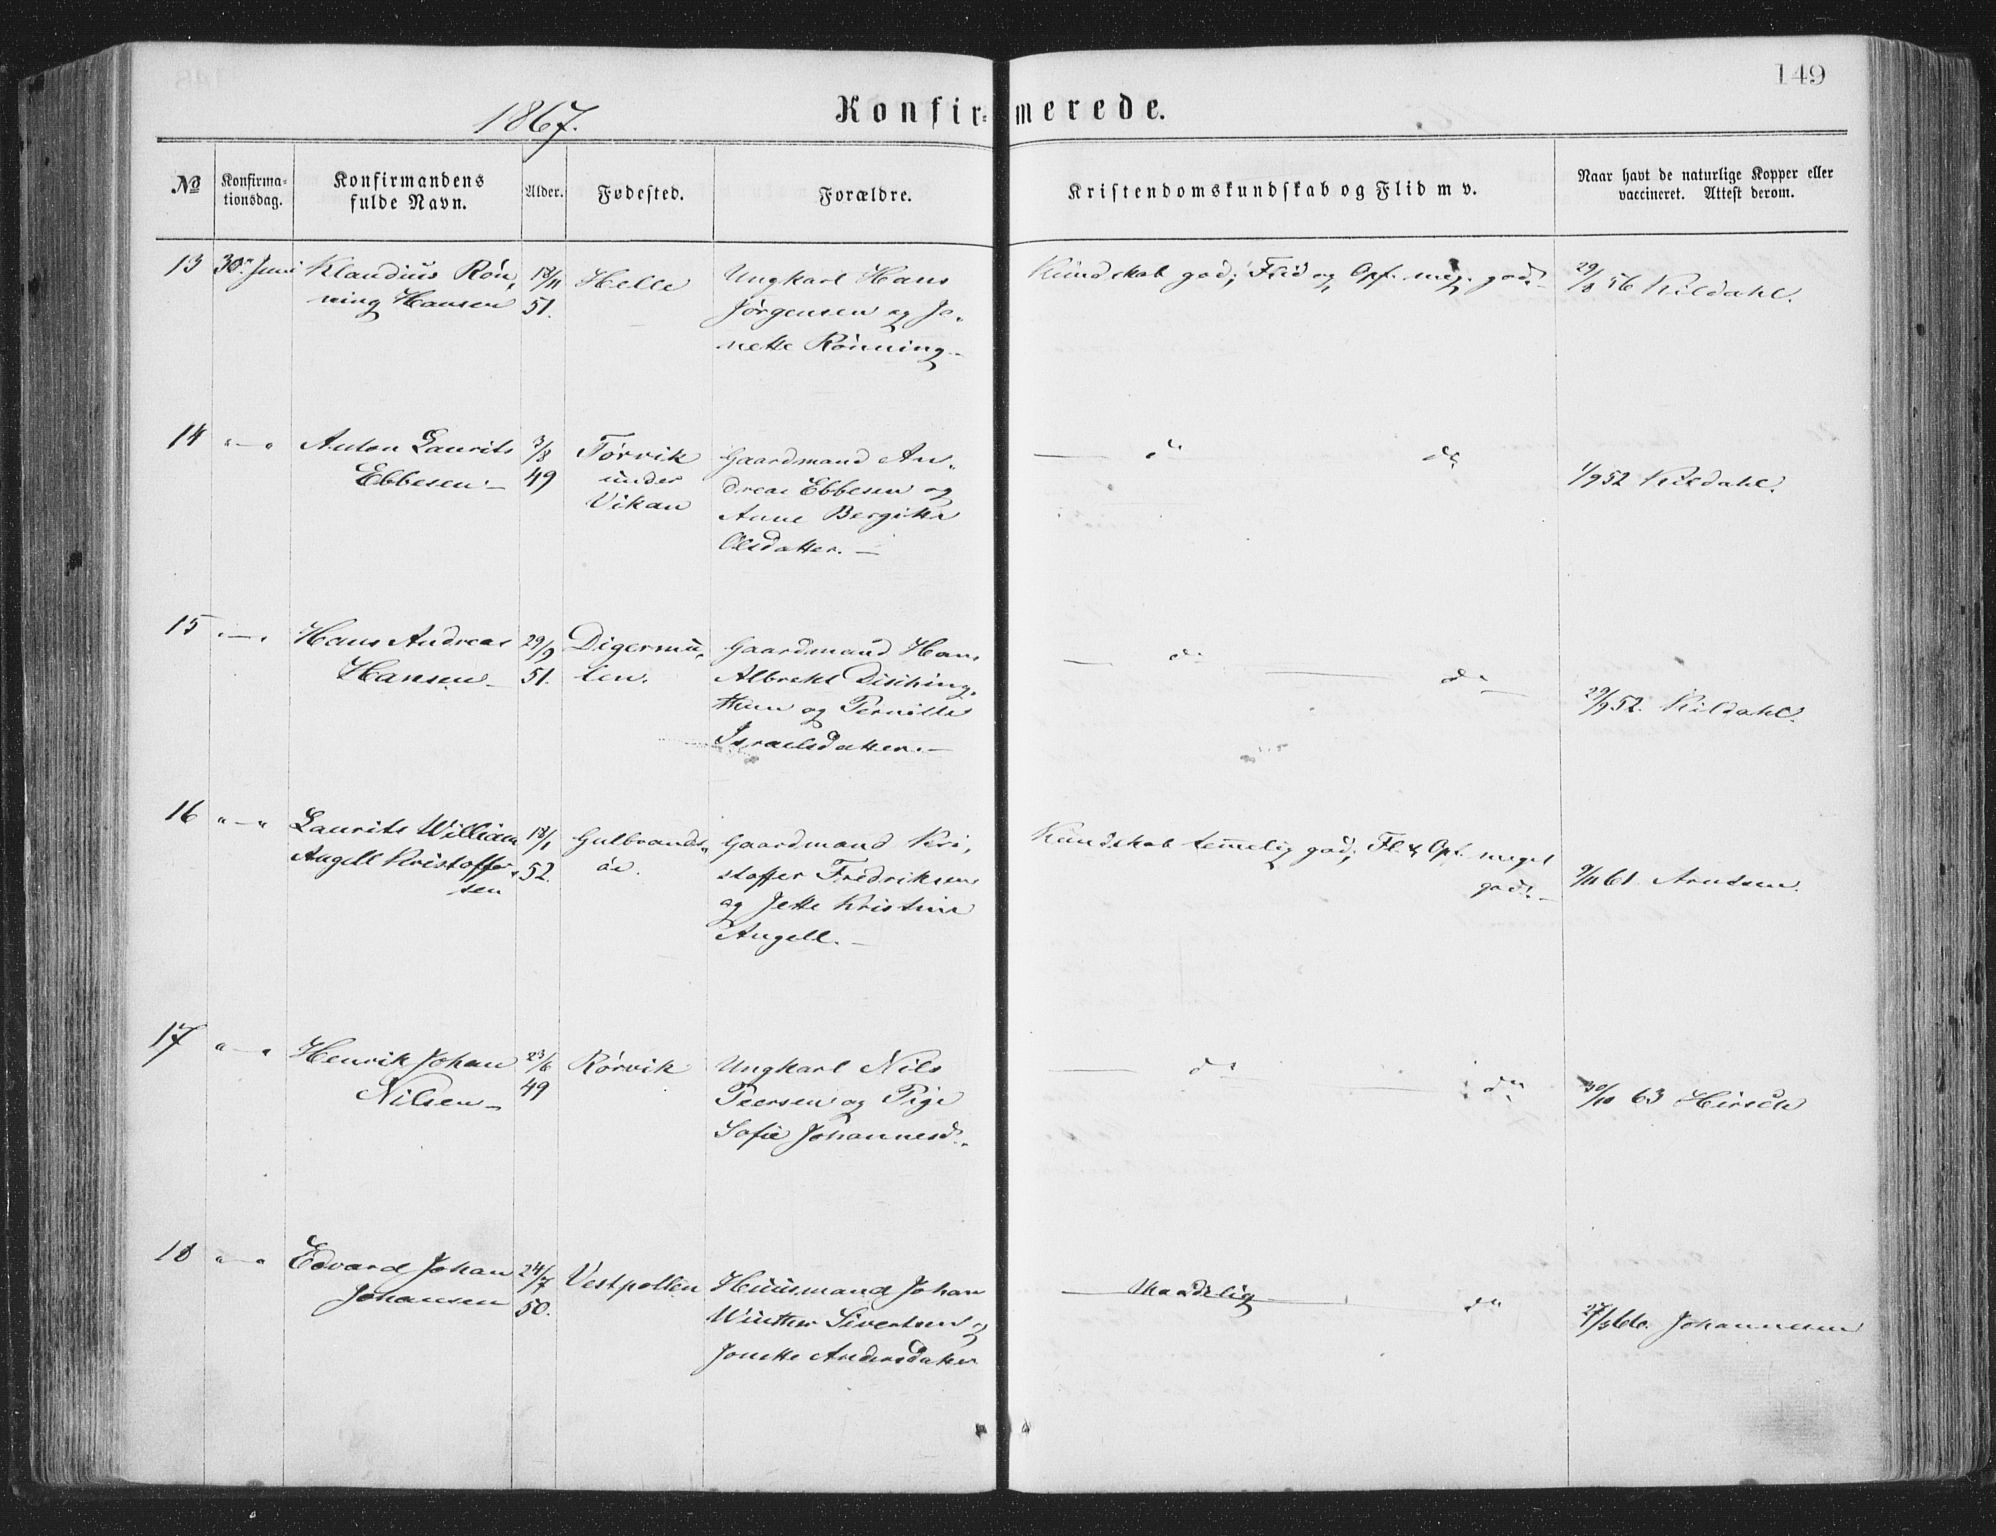 149
1867.
Konfir- merede.
№
Konfirma-
tionsdag.
Konfirmandens
fulde Navn.
Alder.
Fødested.
Forældre.
Kristendomskundskab og Flid m v.
Naar havt de naturlige Kopper eller
vaccineret. Attest derom.
13 30te Juni Klaudius Røn, 18/11 Helle Ungkarl Hans Kundskab god; Flid og Opf. meg. god. 29/8 56 Kildahl.
ning Hansen 51. Jørgensen og Jo-
nette Rønning
14 "—" Anton Laurits 3/8 Tørvik Gaardmand An- — do do 1/9 52 Kildahl.
Ebbesen 49 under dreas Ebbesen og
Vikan Anne Bergitte
Olsdatter. —
15 "—" Hans Andreas 29/9 Digermu- Gaardmand Hans — do — do — 29/9 52. Kildahl.
Hansen 51. len. Albrekt Disching-
thun og Pernille
Israelsdatter. —
16 "—" Laurits William 18/1 Gulbrands- Gaardmand Kri- Kundskab temmelig god; Fl. & Opf. meget
Angell Kristoffer- 52. øi. stoffer Fredriksen god. — 9/11 61 Arntsen.
sen og Jette Kristine
Angell. —
17 "—" Henrik Johan 23/6 Rørvik Ungkarl Nils — do — do 30/10 63 Hirsch
Nilsen 49 Peersen og Pige
Sofie Johannesd.
18 "—" Edvard Johan 24/7 Vestpollen Huusmand Johan — Maadelig — do 27/5 66. Johannesen
Johansen 50. Winther Sivertsen og
Jonette Andersdatter